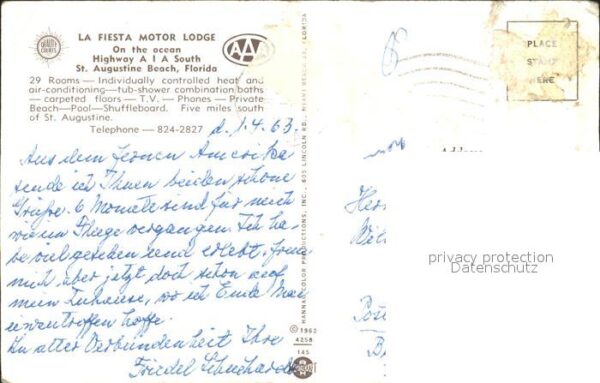 LA FIESTA MOTOR LODGE
On the ocean
Highway A I A South
St. Augustine Beach, Florida
AAA
29 Rooms — Individually controlled heat and
air-conditioning — tub-shower combination baths
— carpeted floors — T.V. — Phones — Private
Beach — Pool — Shuffleboard. Five miles south
of St. Augustine.
Telephone — 824-2827
d. 1.4.63
Aus dem fernen Amerika
sende ich Ihnen beiden schöne
Grüße. 6 Monate sind für mich
wie im Fluge vergangen. Ich ha-
be viel gesehen und erlebt, freue
mich aber jetzt doch schon auf
mein Zuhause, wo ich Ende Mai
einzutreffen hoffe.
In alter Verbundenheit Ihre
Friedel
HANNAU COLOR PRODUCTIONS, INC., 605 LINCOLN RD., MIAMI BEACH, FLORIDA
© 1962
4258
145
PLACE
STAMP
HERE
privacy protection
Datenschutz